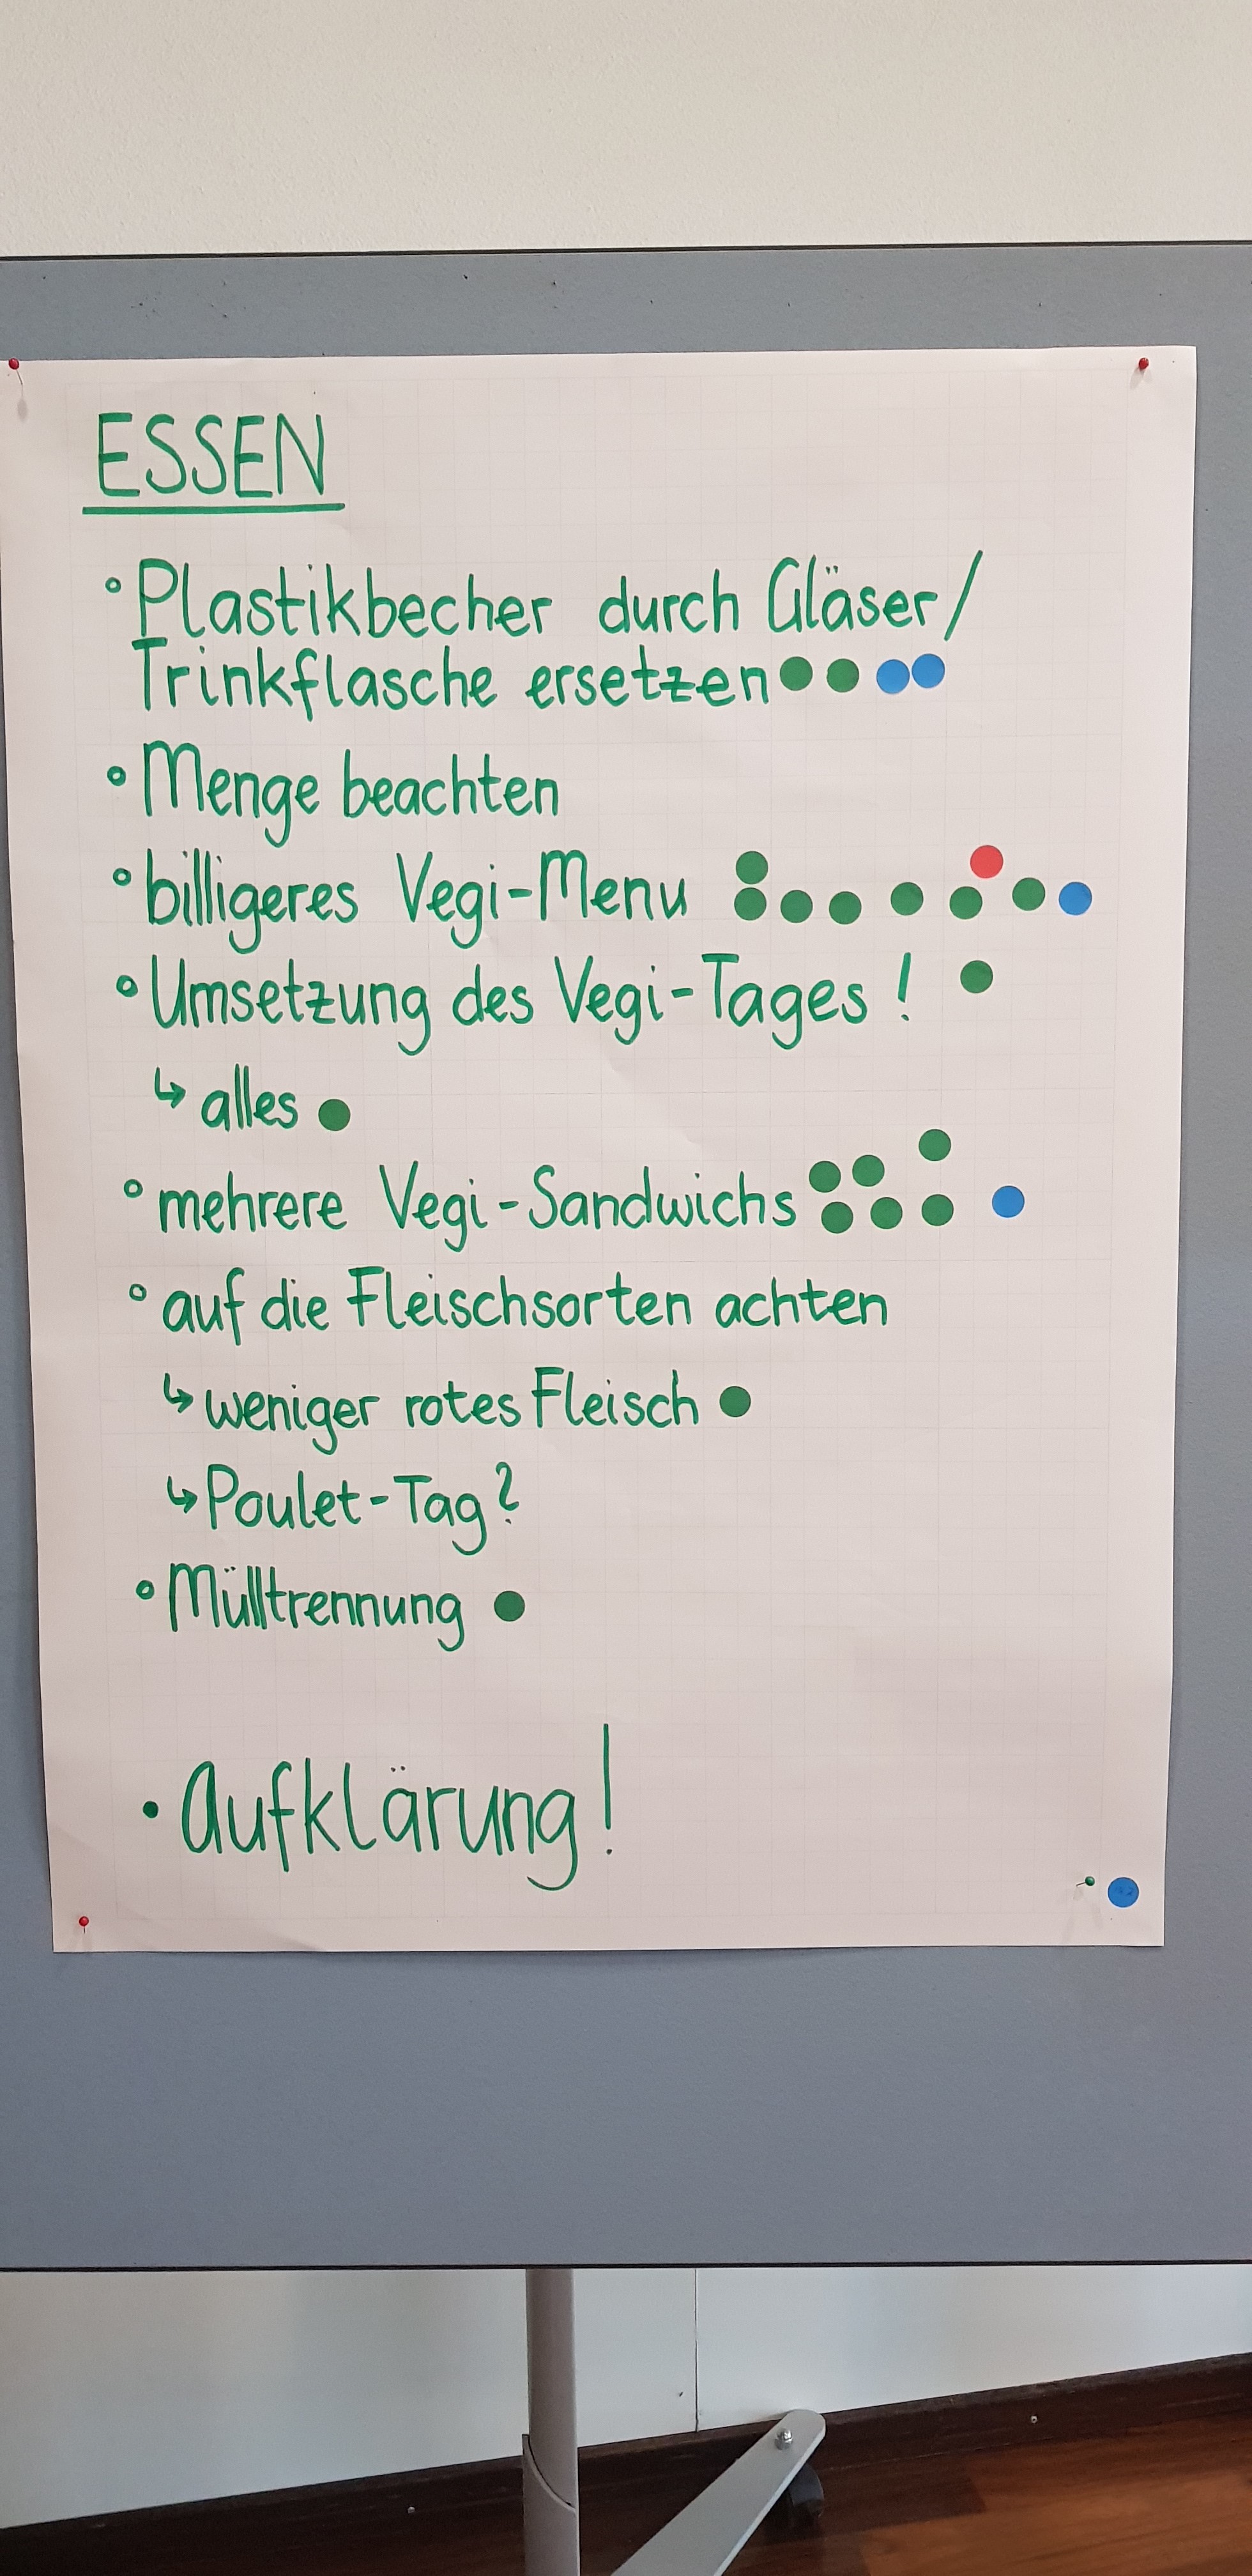 ESSEN
° Plastikbecher durch Gläser/
Trinkflasche ersetzen
° Menge beachten
° billigeres Vegi-Menu
° Umsetzung des Vegi-Tages !
↳ alles
° mehrere Vegi-Sandwichs
° auf die Fleischsorten achten
↳ weniger rotes Fleisch
↳ Poulet-Tag?
° Mülltrennung
• Aufklärung!